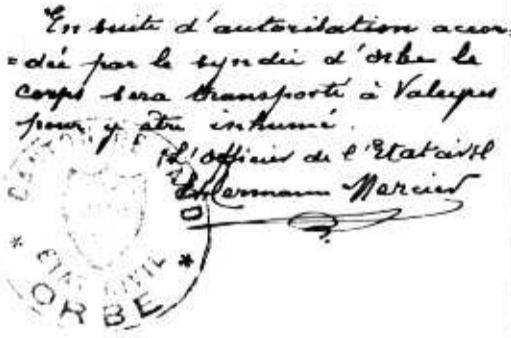 En suite d'autorisation accor-
=dée par le syndic d'Orbe le
corps sera transporté à Valeyres
pour y être inhumé.
L'officier de l'Etat civil
Mercier
CANTON DE VAUD
* ETAT CIVIL *
ORBE